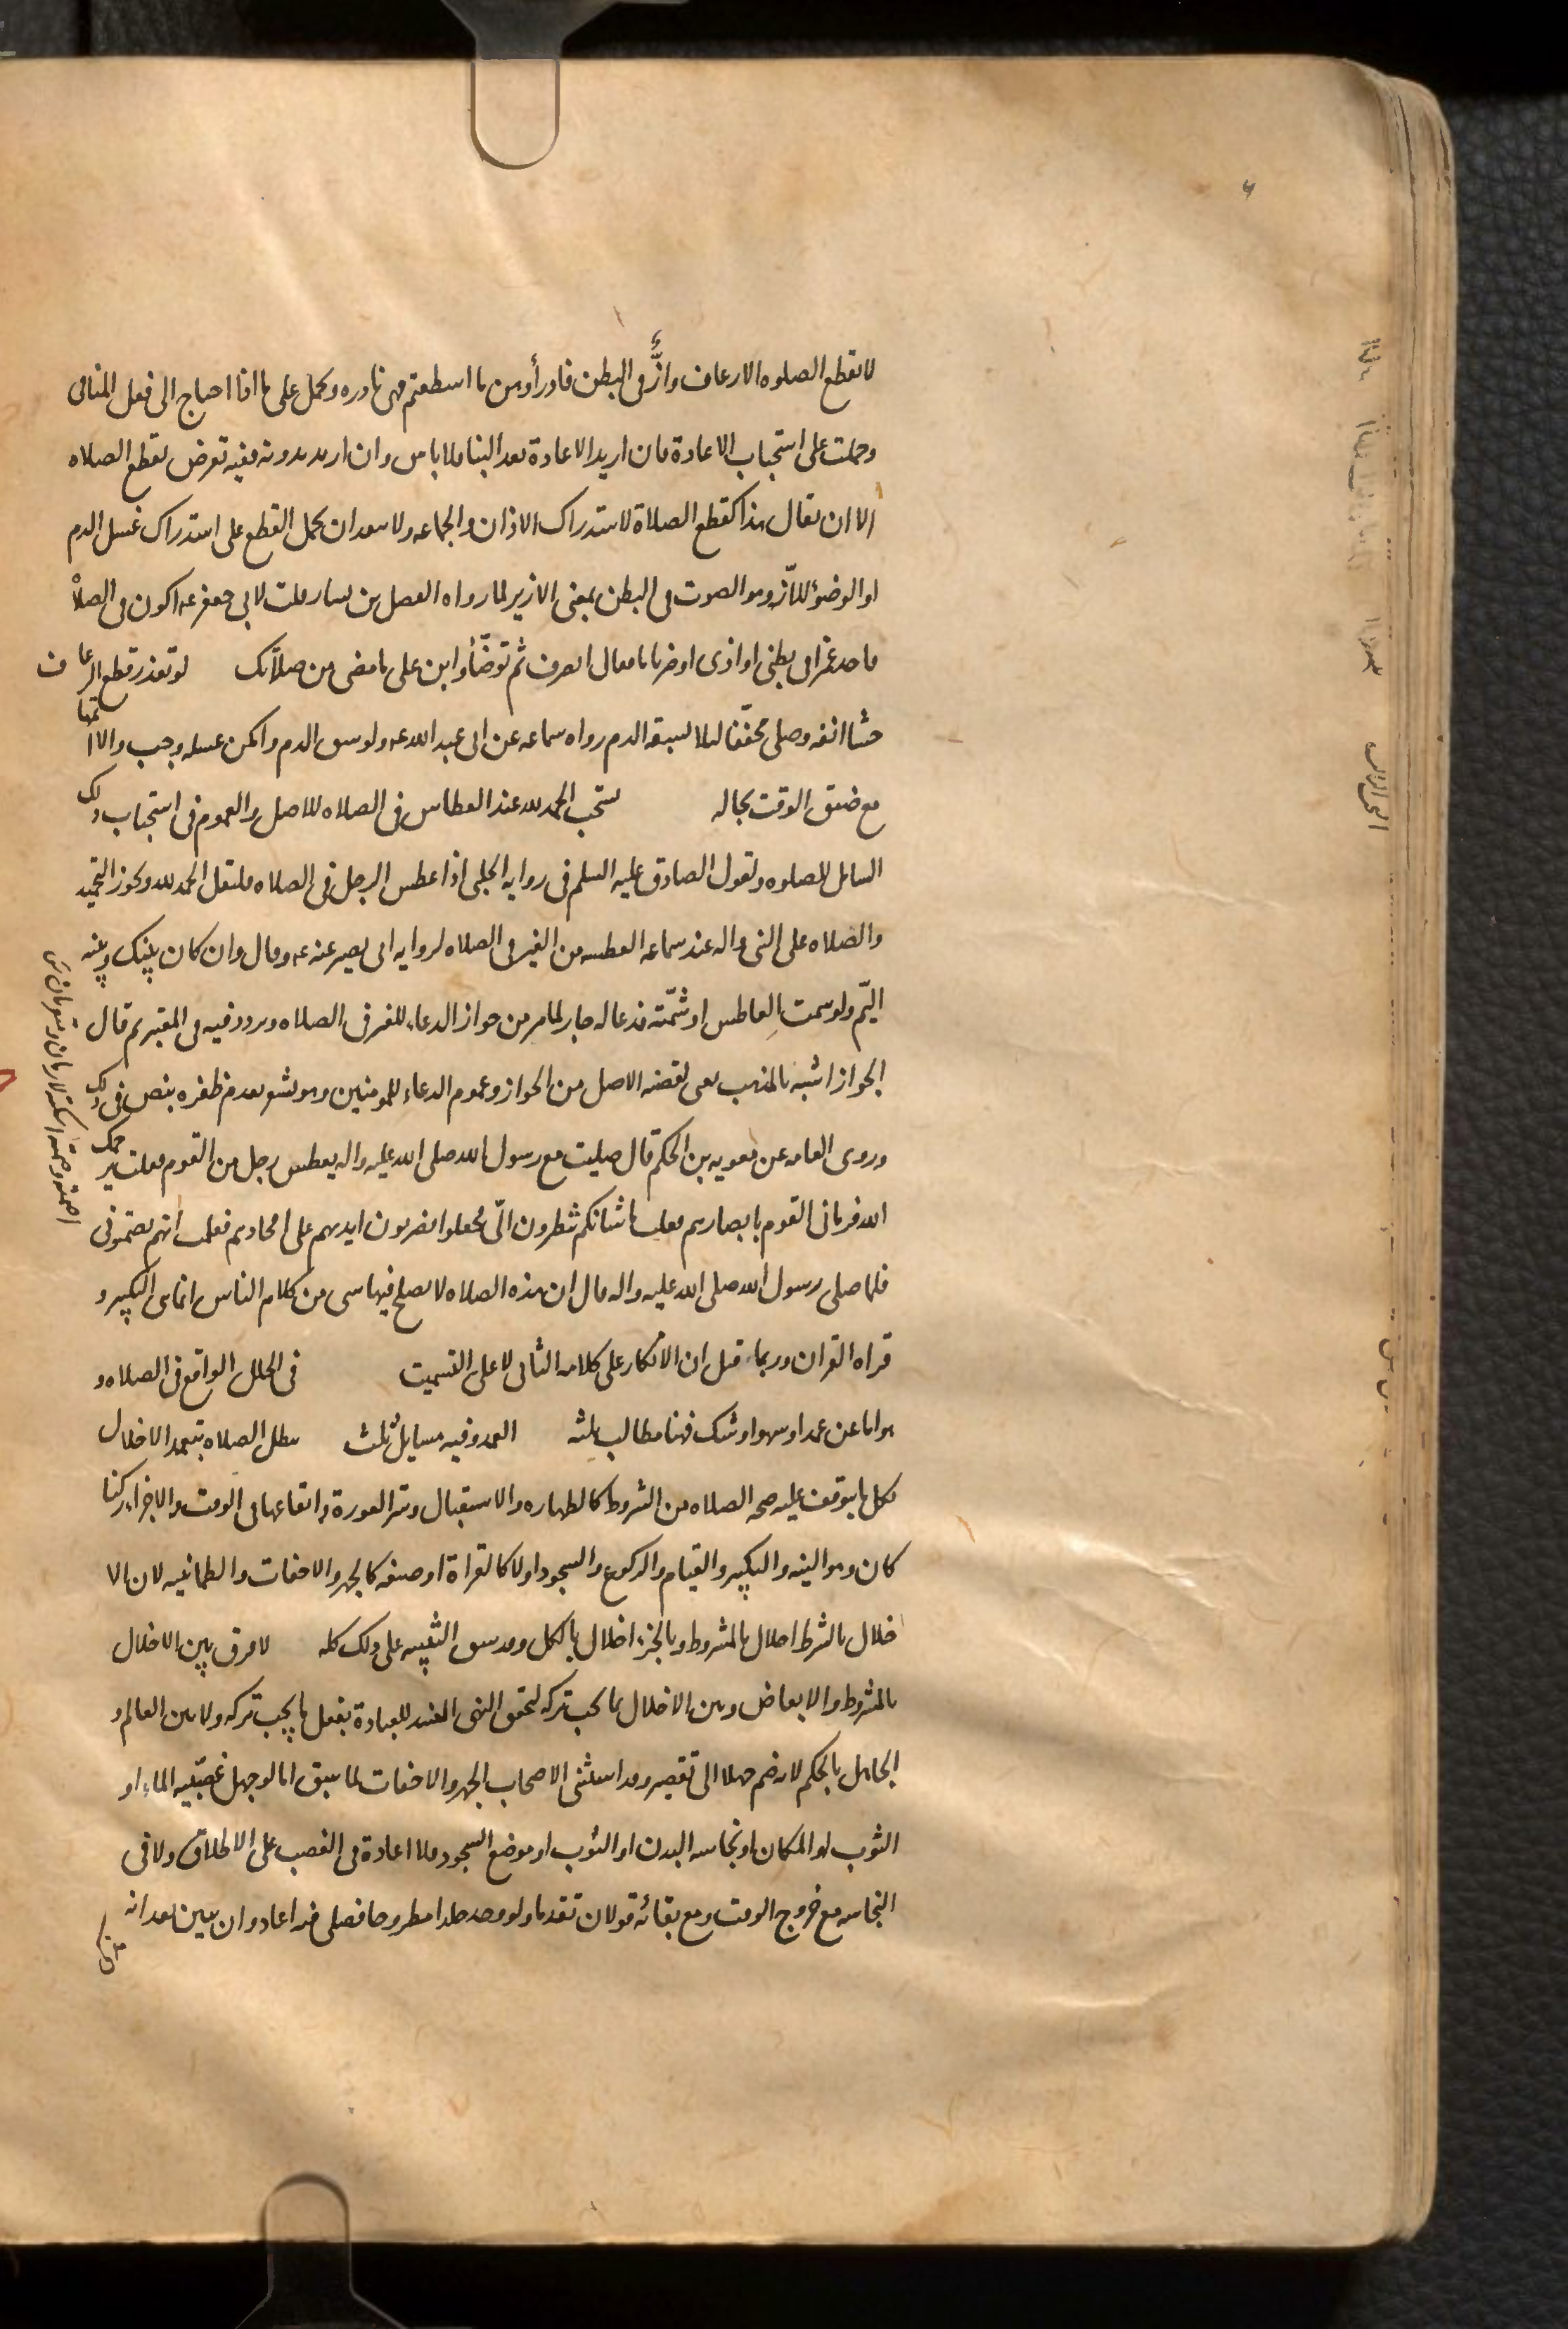 لا يقطع الصلوه الا رعاف وازٌّ فى البطن فادرأوهن ما اسطعتم فهى نادره ويحمل على ما اذا احتاج الى فعل المنافى
وحملت على استحباب الاعادة فان اريد الاعادة بعد البنا فلا باس وان اريد بدونه ففيه تعرض لقطع الصلاه
الا ان يقال هذا كقطع الصلاة لاستدراك الاذان والجماعه ولا يبعد ان يحمل القطع على استدراك غسل الدم
او الوضوء للأزّ وهو الصوت فى البطن بمعنى الازيز لما رواه الفضيل بن يسار قلت لابى جعفر عه اكون فى الصلاة
فاجد غمزا فى بطنى او اذى او ضربانا فقال انصرف ثم توضّأ وابن على ما مضى من صلاتك لو تعذر قطع الرعاف
حشا انفه وصلى مخففّا لئلا يسبقه الدم رواه سماعه عن ابى عبد الله عه ولو سبق الدم وامكن غسله وجب والا اتمها
مع ضيق الوقت بحاله يستحب الحمد لله عند العطاس فى الصلاه للاصل والعموم فى استحباب ذلك
الشامل للصلوه ولقول الصادق عليه السلم فى روايه الحلبى اذا عطس الرجل فى الصلاه فليقل الحمد لله ويجوز التحميد
والصلاه على النبى واله عند سماعه العطسه من الغير فى الصلاه لروايه ابى بصير عنه عه وقال وان كان بينك وبينه
اليمّ ولو سمت العاطس او شمّته فدعا له جاز لما مر من جواز الدعاء للغير فى الصلاه وتردد فيه فى المعتبر ثم قال
الجواز اشبه بالمذهب يعنى لقضيه الاصل من الجواز وعموم الدعاء للمومنين وهو يشعر بعدم ظفره بنص فى ذلك
وروى العامه عن معويه بن الحكم قال صليت مع رسول الله صلى الله عليه واله فعطس رجل من القوم فقلت يرحمك
الله فرمانى القوم بابصارهم فقلت ما شانكم تنظرون الىّ فجعلوا يضربون ايديهم على افخاذهم فعلمت انهم يصمتونى
فلما صلى رسول الله صلى الله عليه واله قال ان هذه الصلاه لا يصلح فيها شى من كلام الناس انما هى التكبير و
قراه القران وربما قيل ان الانكار على كلامه الثانى لا على التسميت فى الخلل الواقع فى الصلاه و
هو اما عن عمد او سهو او شك فهنا مطالب ثلثه العمد وفيه مسايل ثلث تبطل الصلاه بتعمد الاخلال
بكل ما يتوقف عليه صحه الصلاه من الشروط كالطهاره والاستقبال وستر العورة وايقاعها فى الوقت والاجزاء ركنا
كان وهو النيه والتكبير والقيام والركوع والسجود اولا كالقراة او صفه كالجهر والاخفات والطمانينه لان الا
خلال بالشرط اخلال بالمشروط وبالجزء اخلال بالكل وقد سبق التنبيه على ذلك كله لا فرق بين الاخلال
بالشروط والابعاض وبين الاخلال بما يجب تركه لتحقق النهى المفسد للعبادة بفعل ما يجب تركه ولا بين العالم و
الجاهل بالحكم لانه ضم جهلا الى تقصير وقد استثنى الاصحاب الجهر والاخفات لما سبق اما لو جهل غصبّيه الماء او
الثوب او المكان او نجاسه البدن او الثوب او موضع السجود فلا اعادة فى الغصب على الاطلاق ولا فى
النجاسه مع خروج الوقت ومع بقائه قولان تقدما ولو وجد جلدا مطروحا فصلى فيه اعاد وان تبين بعد انه